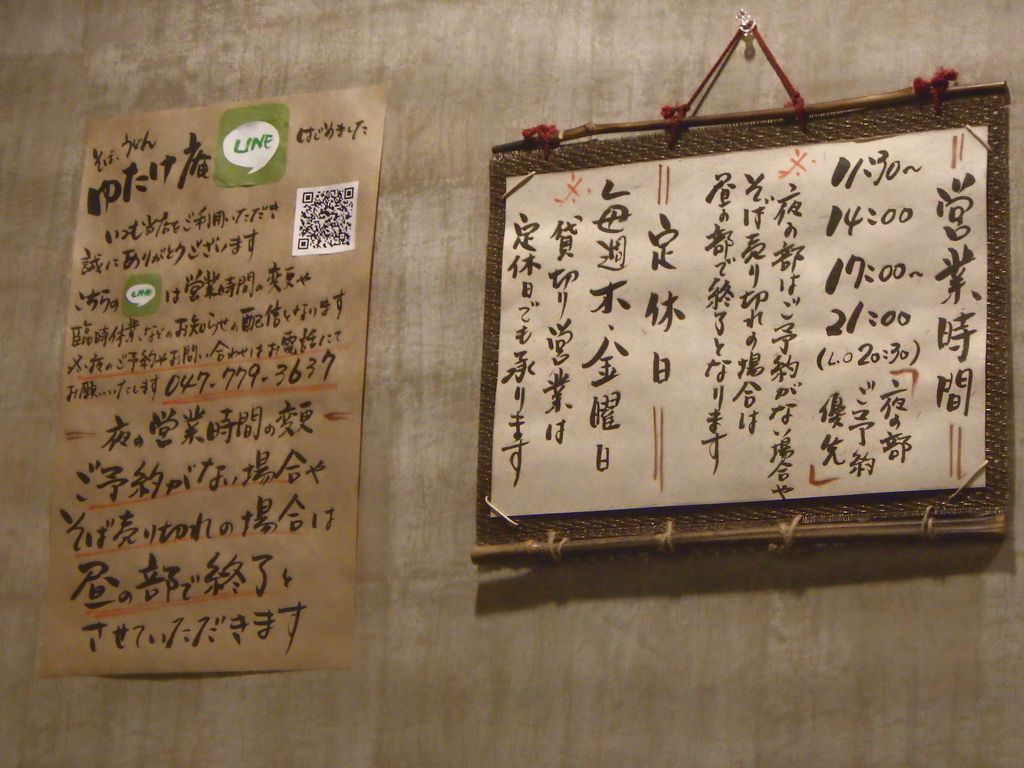 そば、うどん
ゆたけ庵
LINE
はじめました
いつも当店をご利用いただき
誠にありがとうございます
こちらの LINE は営業時間の変更や
臨時休業などのお知らせの配信となります
※夜のご予約やお問い合わせはお電話にて
お願いいたします 047-779-3637
夜の営業時間の変更
ご予約がない場合や
そば売り切れの場合は
昼の部で終了と
させていただきます
営業時間
11:30~
14:00
17:00~
21:00
(L.O 20:30)
「夜の部
ご予約
優先」
※夜の部はご予約がない場合や
そば売り切れの場合は
昼の部で終了となります
定休日
毎週木・金曜日
※貸切り営業は
定休日でも承ります